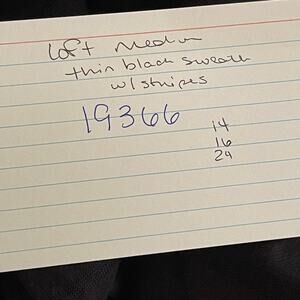 Loft Medium
thin black sweater
w/stripes
19366
14
16
24